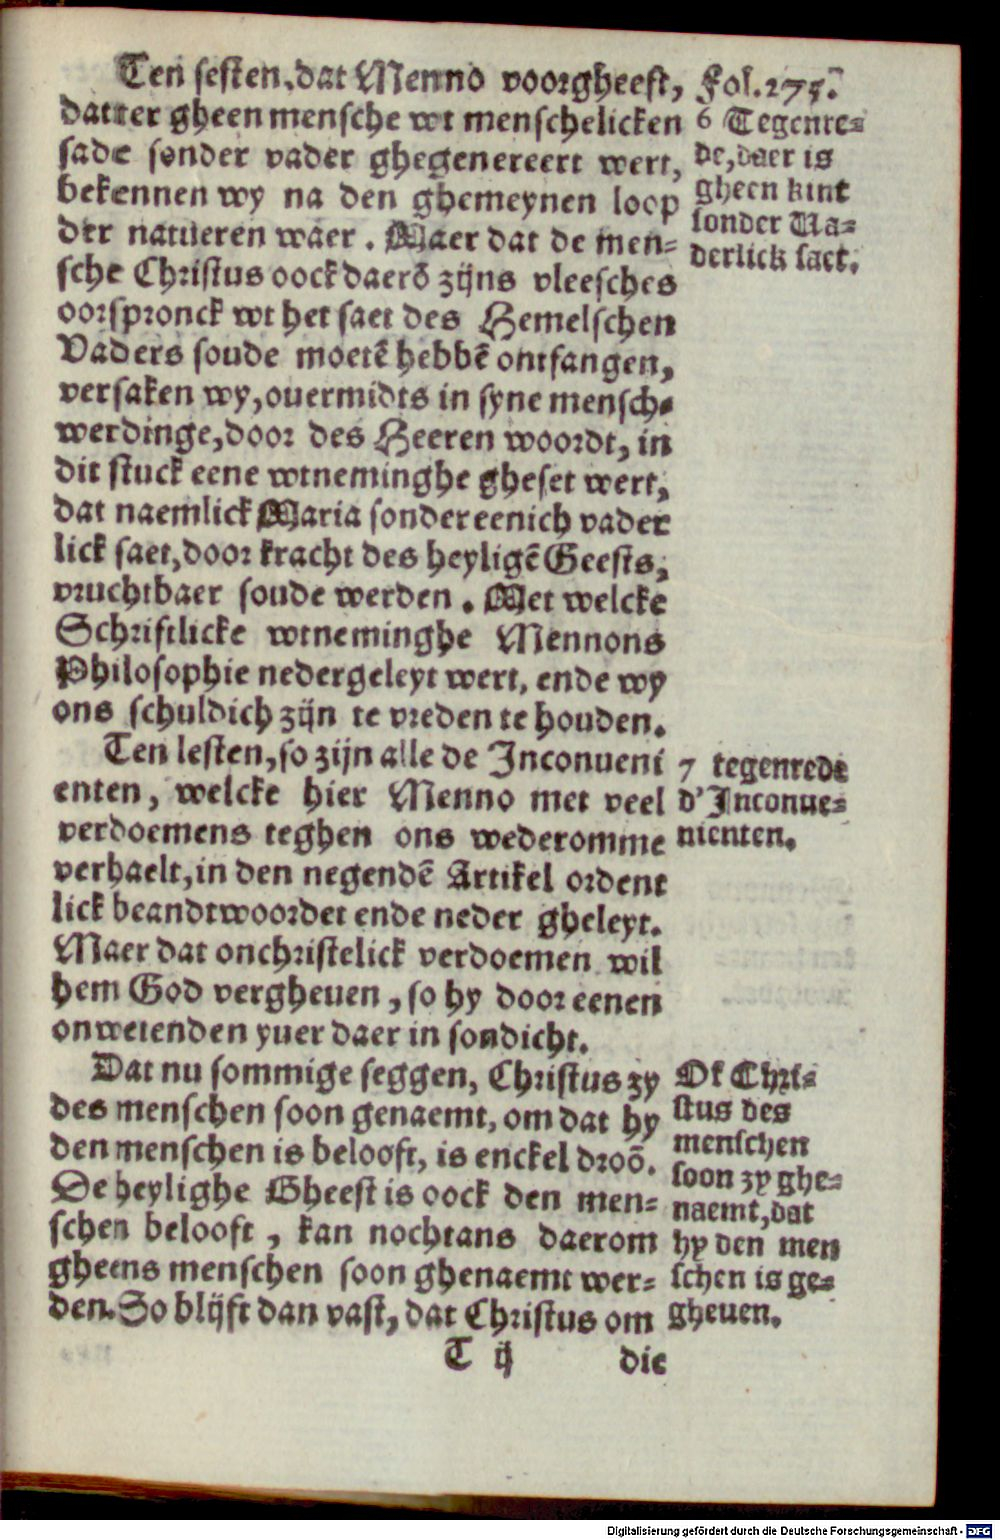 Ten sesten, dat Menno voorgheeft,
datter gheen mensche wt menschelicken
sade sonder vader ghegenereert wert,
bekennen wy na den ghemeynen loop
der natueren waer. Maer dat de men-
sche Christus oock daerō zijns vleesches
oorspronck wt het saet des Hemelschen
Vaders soude moetē hebbē ontfangen,
versaken wy, ouermidts in syne mensch-
werdinge, door des Heeren woordt, in
dit stuck eene wtneminghe gheset wert,
dat naemlick Maria sonder eenich vader
lick saet, door kracht des heyligē Geests,
vruchtbaer soude werden. Met welcke
Schriftlicke wtneminghe Mennons
Philosophie nedergeleyt wert, ende wy
ons schuldich zijn te vreden te houden.
Ten lesten, so zijn alle de Inconueni
enten, welcke hier Menno met veel
verdoemens teghen ons wederomme
verhaelt, in den negendē Artikel ordent
lick beandtwoordet ende neder gheleyt.
Maer dat onchristelick verdoemen wil
hem God vergheuen, so hy door eenen
onwetenden yuer daer in sondicht.
Dat nu sommige seggen, Christus zy
des menschen soon genaemt, om dat hy
den menschen is belooft, is enckel droō.
De heylighe Gheest is oock den men-
schen belooft, kan nochtans daerom
gheens menschen soon ghenaemt wer-
den. So blijft dan vast, dat Christus om
T ij die
Fol. 275.
6 Tegenre-
de, daer is
gheen kint
sonder Va-
derlick saet.
7 tegenrede
d'Inconue-
nienten.
Of Chri-
stus des
menschen
soon zy ghe-
naemt, dat
hy den men
schen is ge-
gheuen.
Digitalisierung gefördert durch die Deutsche Forschungsgemeinschaft - DFG